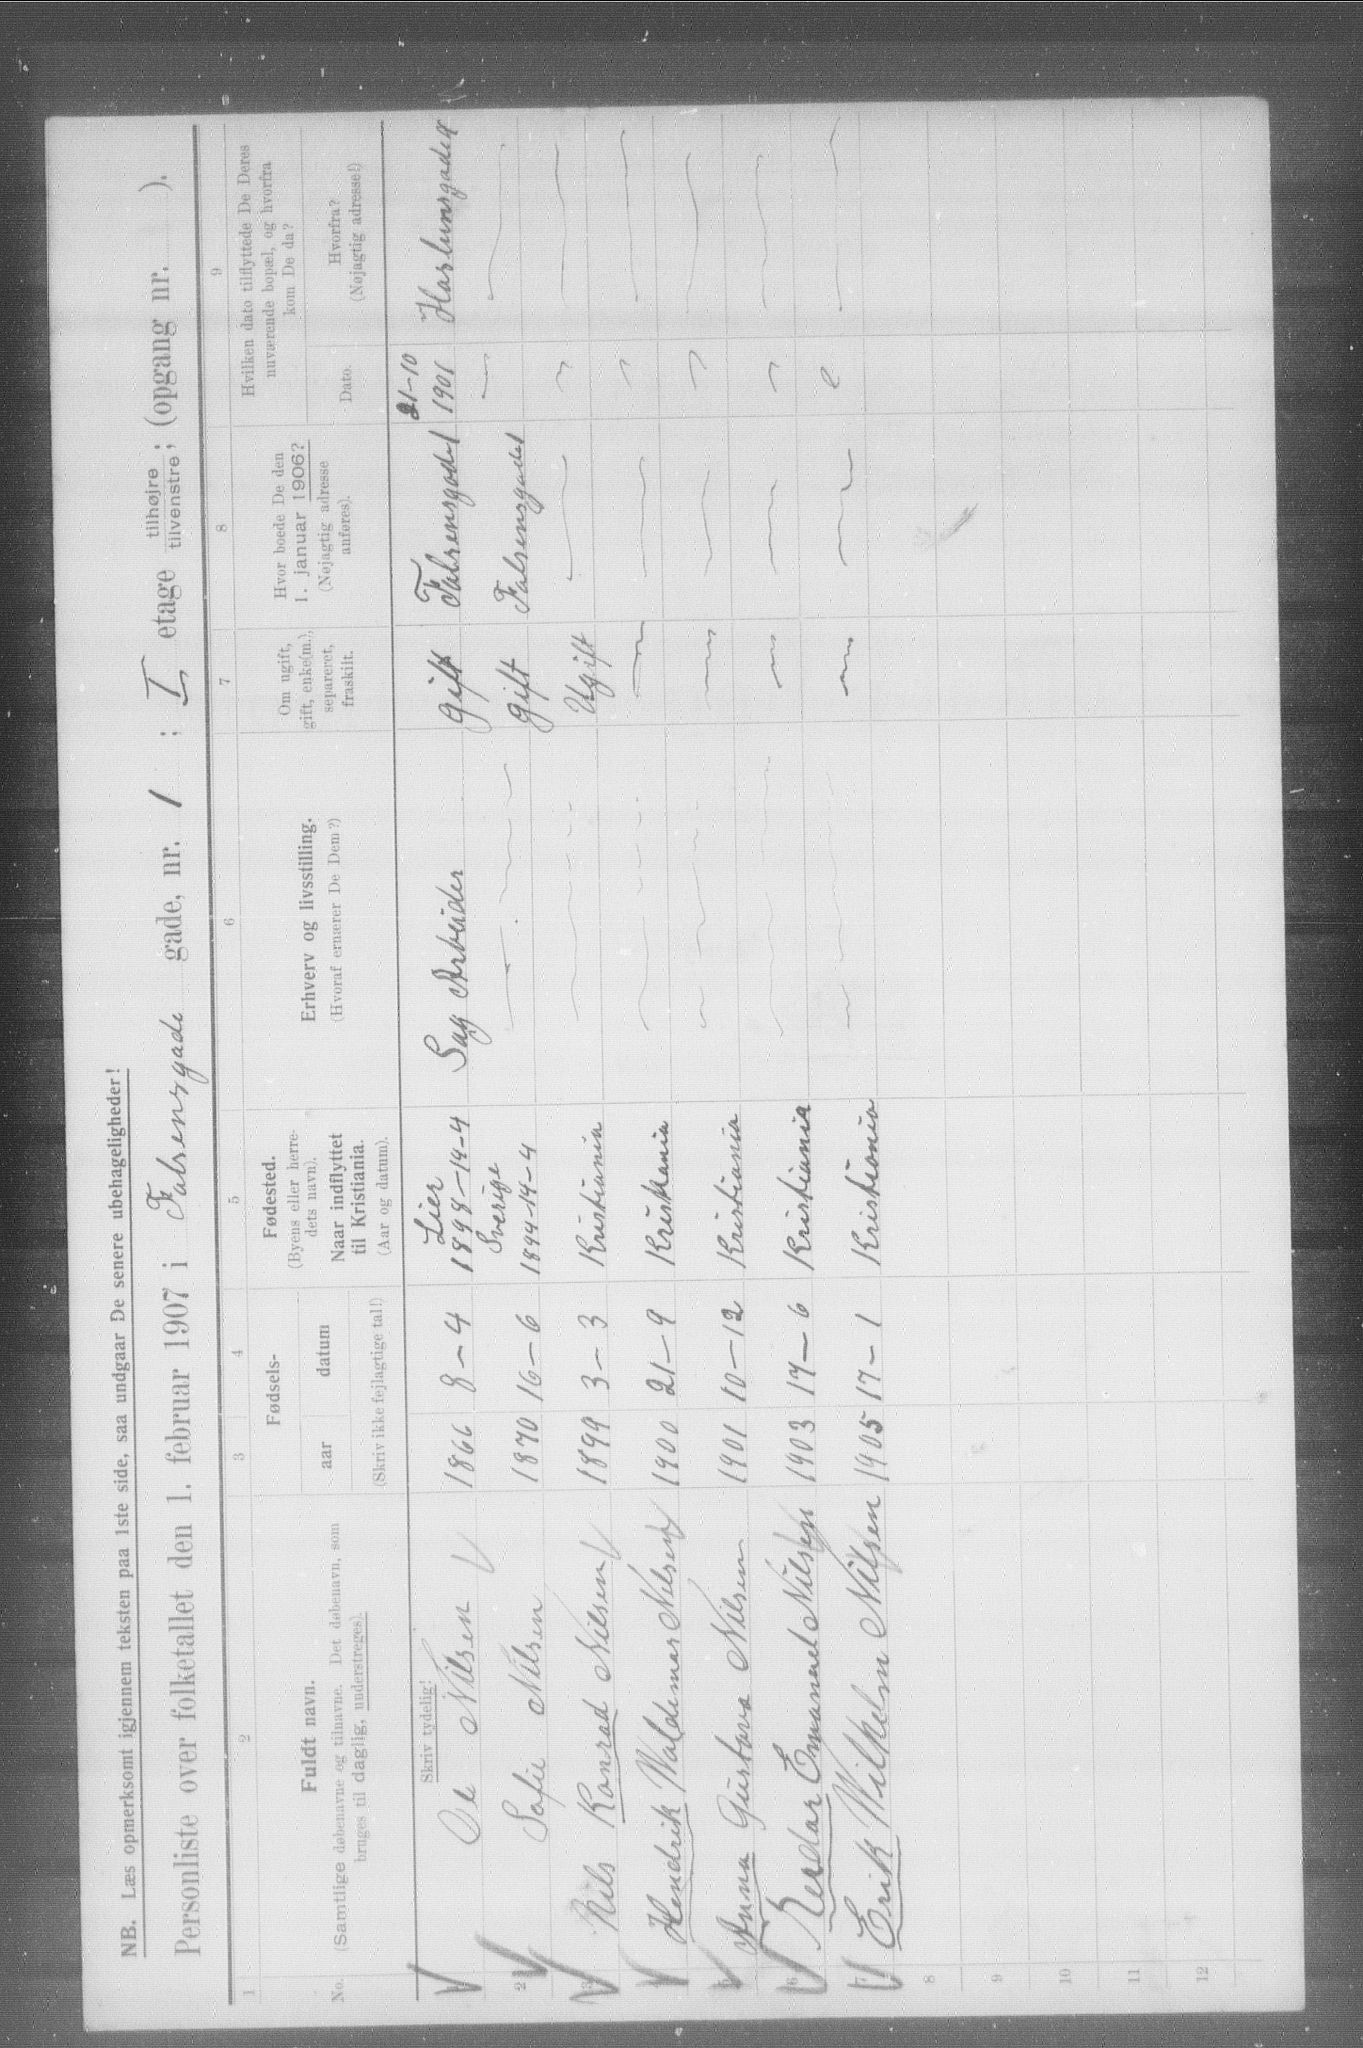 NB. Læs opmerksomt igjennem teksten paa 1ste side, saa undgaar De senere ubehageligheder!
Personliste over folketallet den 1. februar 1907 i Falsensgade gade, nr. 1 ; I etage tilhøjre tilvenstre ; (opgang nr. ).
1 2 3 4 5 6 7 8 9
No.
Fuldt navn.
(Samtlige døbenavne og tilnavne. Det døbenavn, som
bruges til daglig, understreges).
Fødsels-
aar datum
(Skriv ikke fejlagtige tal!)
Fødested.
(Byens eller herre-
dets navn).
Naar indflyttet
til Kristiania.
(Aar og datum).
Erhverv og livsstilling.
(Hvoraf ernærer De Dem?)
Om ugift,
gift, enke(m.),
separeret,
fraskilt.
Hvor boede De den
1. januar 1906?
(Nøjagtig adresse
anføres).
Hvilken dato tilflyttede De Deres
nuværende bopæl, og hvorfra
kom De da?
Dato.
Hvorfra?
(Nøjagtig adresse!)
Skriv tydelig!
Nilsen 1866 8-4 Lier 1894-14-4 Sag Arbeider gift Falsensgadel 21-10 1901
2 Sofie Nilsen 1870 16-6 Sverige 1894-14-4 gift Falsensgadel
3 Nils Konrad Nilsen 1899 3-3 Kristiania Ugift
Hendrik Waldemar Nilsen 1900 21-9 Kristiania
5 Anna Gustava Nilsen 1901 10-12 Kristiania
6 Reidar Emanuel Nilsen 1903 17-6 Kristiania
7 Erik Wilhelm Nilsen 1905 17-1 Kristiania
8
9
10
11
12